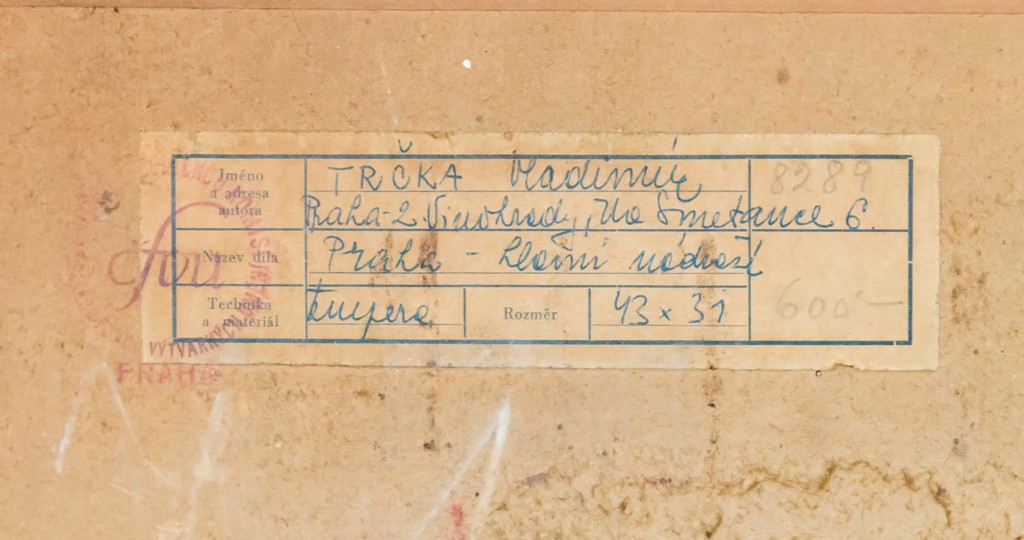 Jméno
a adresa
autora
TRČKA Vladimír
Praha-2 Vinohrady, Na Smetance 6.
8289
Název díla
Praha - hlavní nádraží
Technika
a materiál
tempera
Rozměr
43 x 31
600'—
čfvu
VÝTVARNÝCH
PRAHA